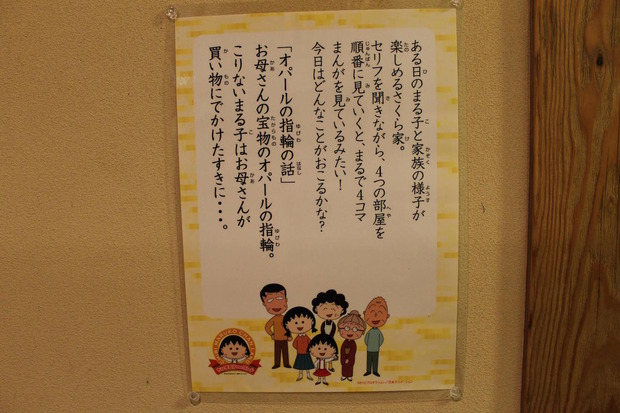 ある日のまる子と家族の様子が
楽しめるさくら家。
セリフを聞きながら、4つの部屋を
順番に見ていくと、まるで4コマ
まんがを見ているみたい！
今日はどんなことがおこるかな？
「オパールの指輪の話」
お母さんの宝物のオパールの指輪。
こりないまる子はお母さんが
買い物にでかけたすきに・・・。